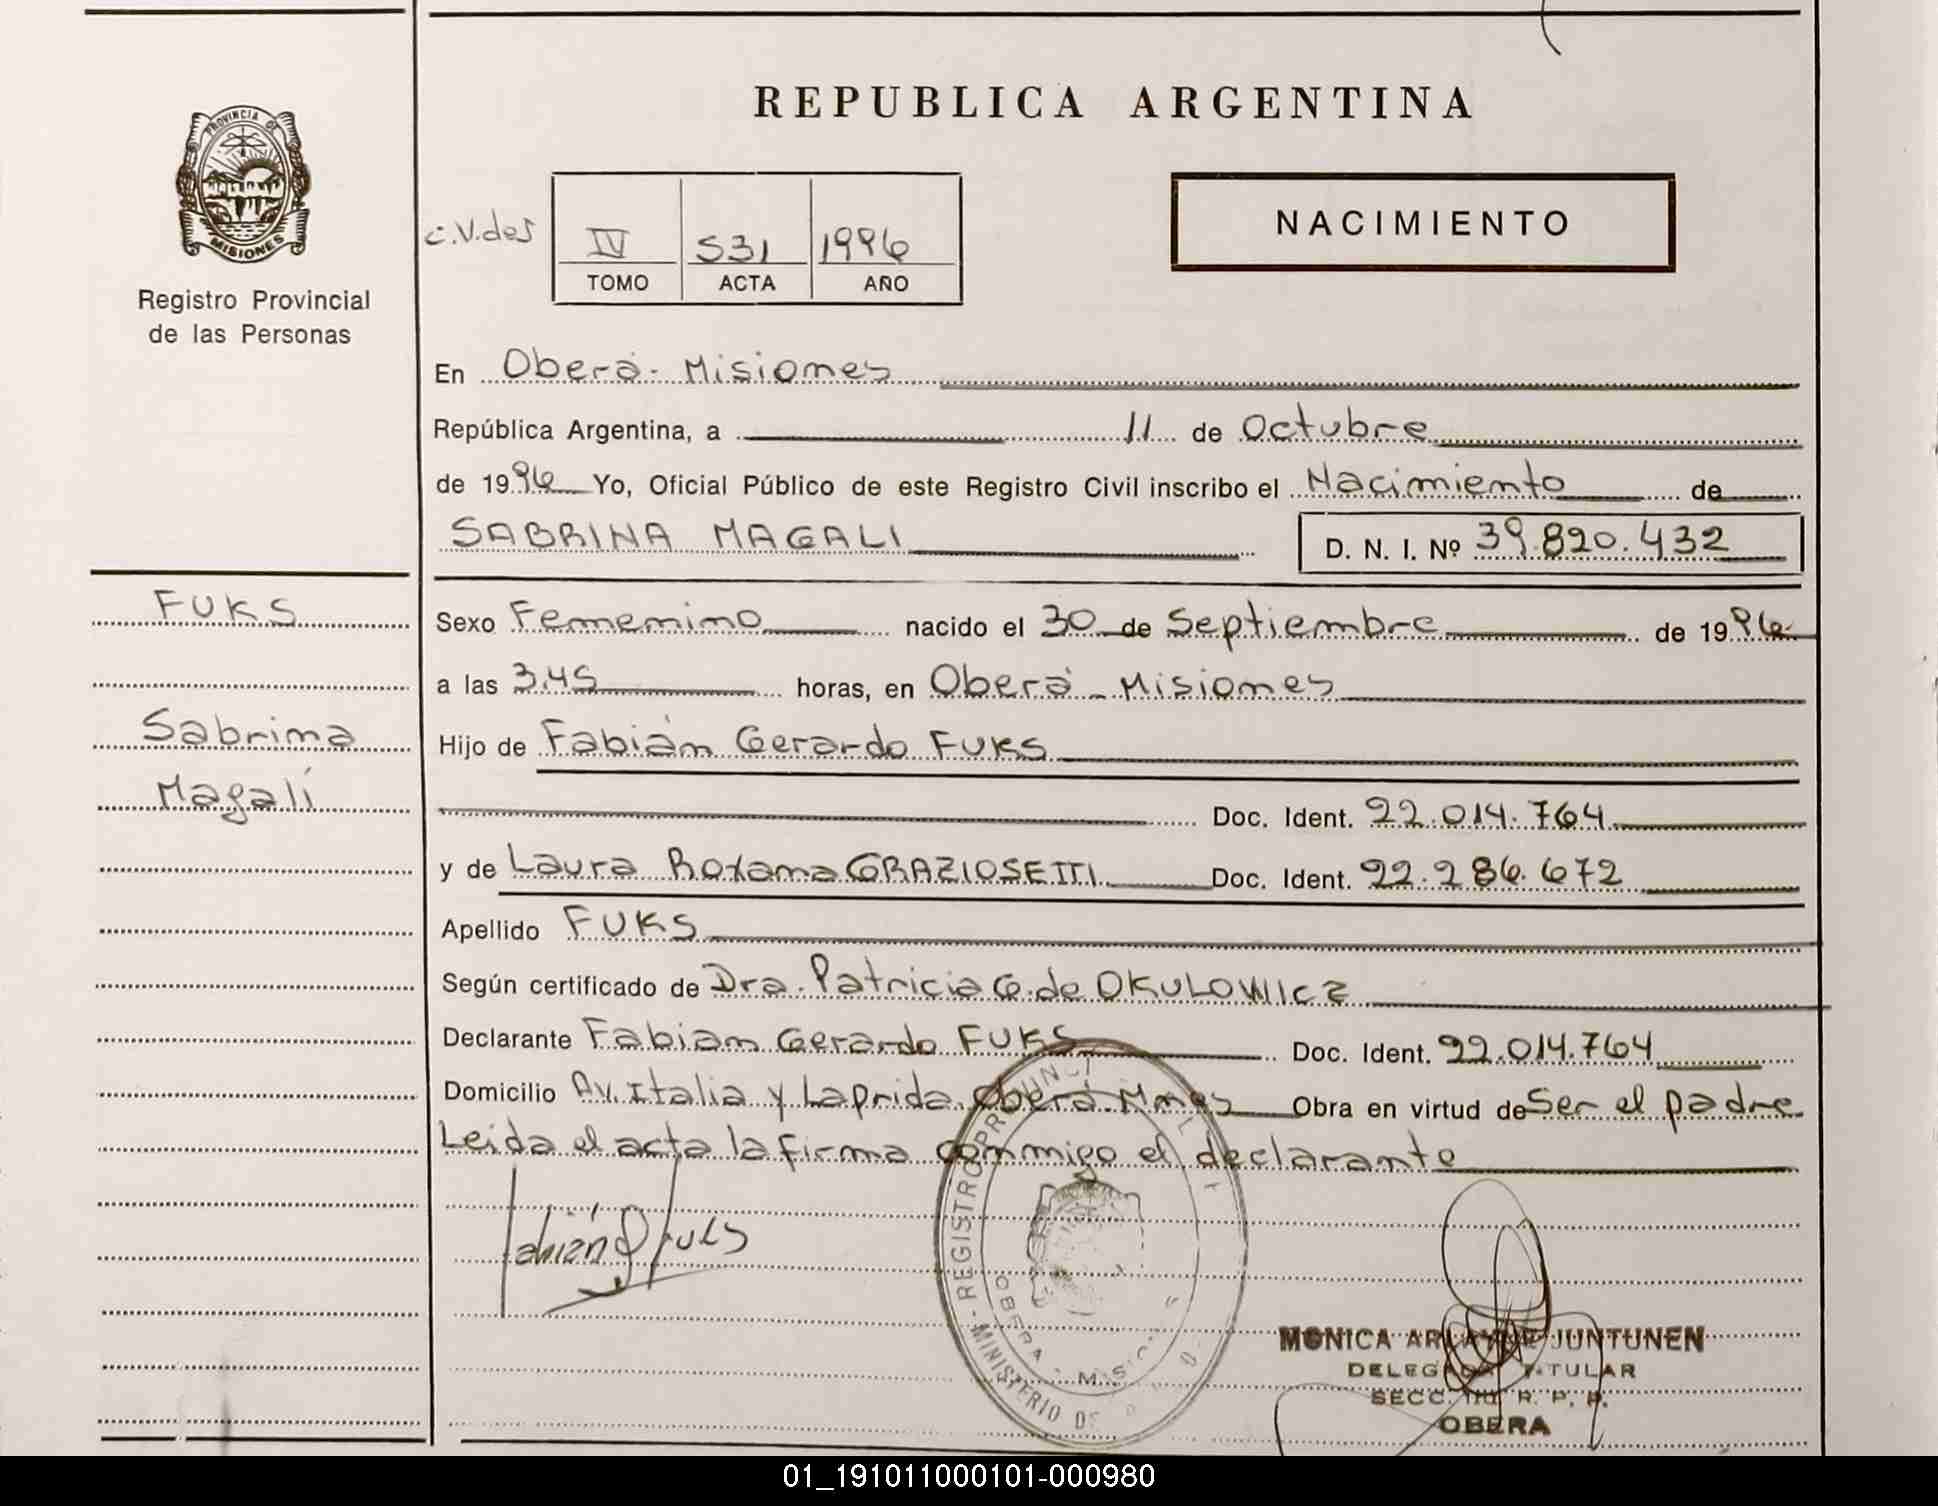 REPUBLICA ARGENTINA
PROVINCIA DE
MISIONES
Registro Provincial
de las Personas
NACIMIENTO
IV 531 1996
TOMO ACTA AÑO
En Oberá - Misiones
República Argentina, a 11 de Octubre
de 1996 Yo, Oficial Público de este Registro Civil inscribo el Nacimiento de
SABRINA MAGALI D. N. I. Nº 39.820.432
FUKS
Sabrina
Magalí
Sexo Femenino nacido el 30 de Septiembre de 1996
a las 3,45 horas, en Oberá - Misiones
Hijo de Fabián Gerardo FUKS
Doc. Ident. 22.014.764
y de Laura Roxana GRAZIOSETTI Doc. Ident. 22.286.672
Apellido FUKS
Según certificado de Dra. Patricia G. de OKULOWICZ
Declarante Fabian Gerardo FUKS Doc. Ident. 22.014.764
Domicilio Av. Italia y Laprida. Oberá. Mnes Obra en virtud de Ser el padre
Leida el acta la firma conmigo el declarante
Fabián G Fuks
REGISTRO
MINISTERIO DE
OBERA
MONICA JUNTUNEN
SECC. R. P. P.
OBERA
01_191011000101-000980